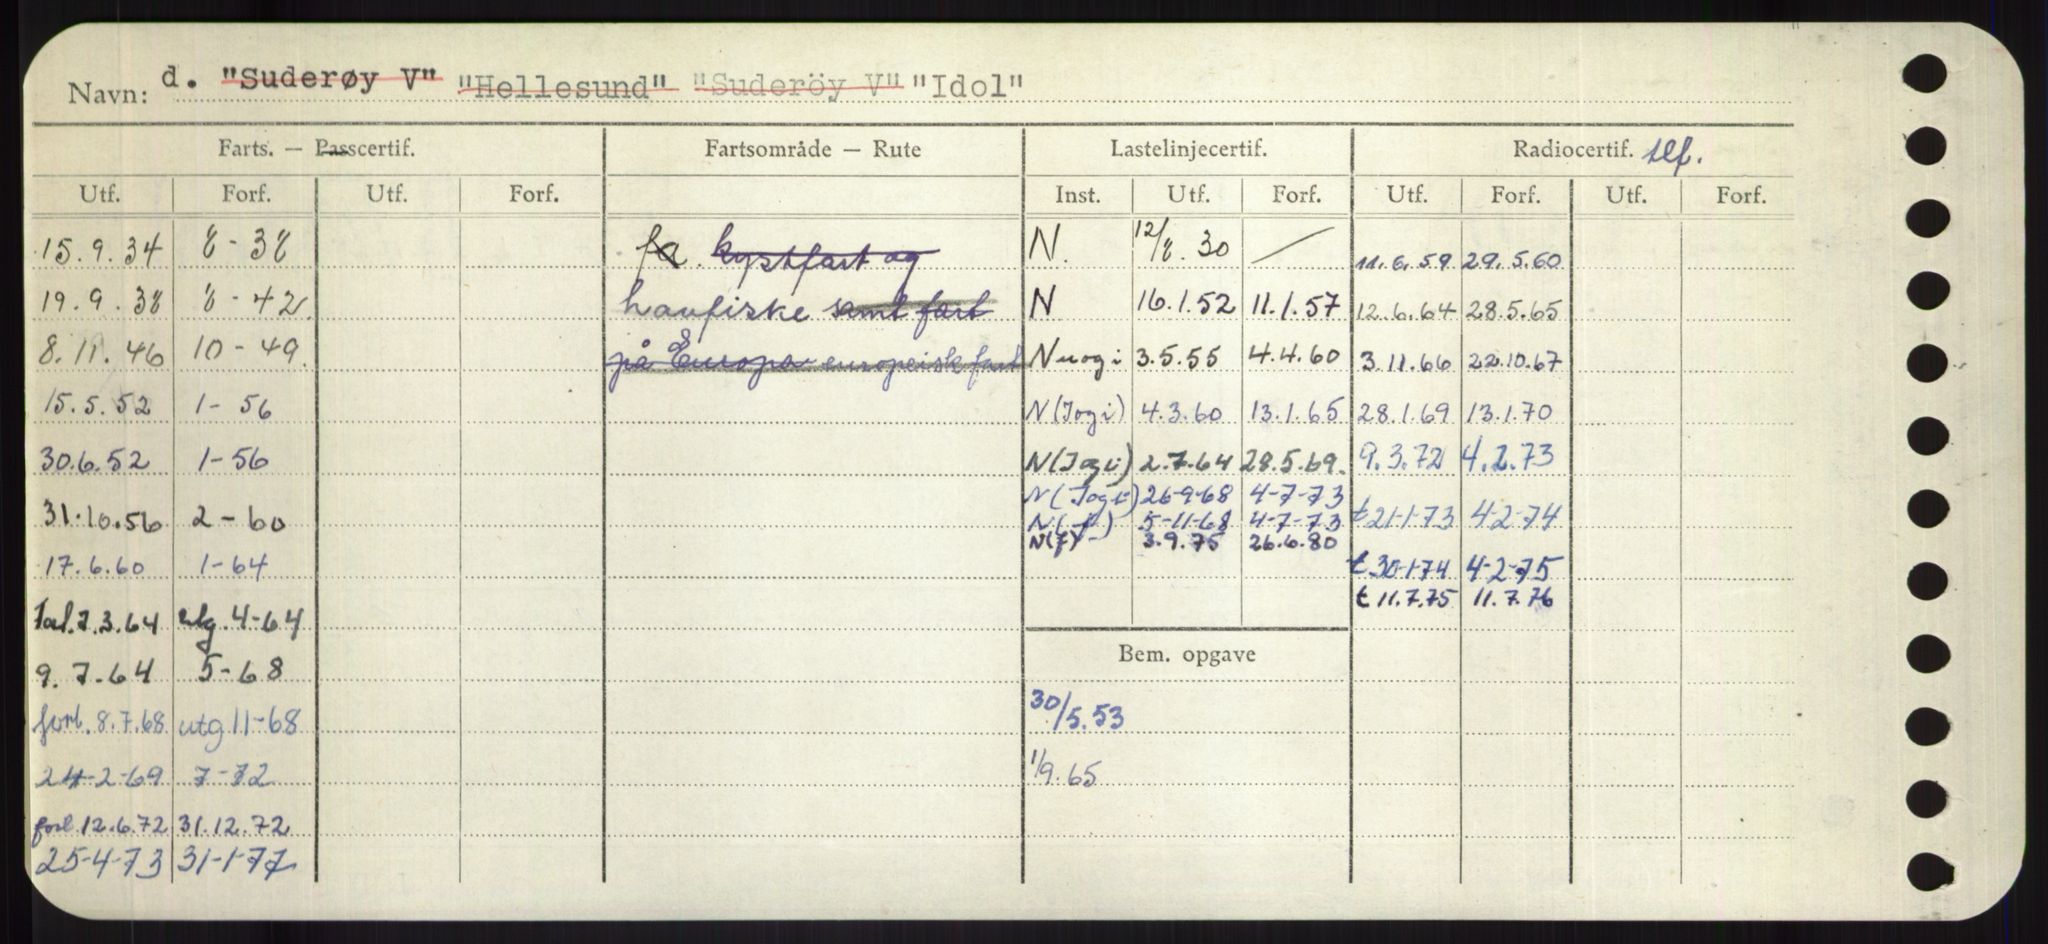 Navn: d. "Suderøy V" "Hellesund" "Suderöy V" "Idol"
Farts. — Passcertif. Fartsområde — Rute Lastelinjecertif. Radiocertif. tlf.
Utf. Forf. Utf. Forf. Inst. Utf. Forf. Utf. Forf. Utf. Forf.
15.9.34 8-38 kystfart og N. 12/8.30 11.6.59 29.5.60
19.9.38 8-42 havfiske samt fart N 16.1.52 11.1.57 12.6.64 28.5.65
8.11.46 10-49. på Europa europeisk fart N 3.5.55 4.4.60 3.11.66 22.10.67
15.5.52 1-56 N(Jogi) 4.3.60 13.1.65 28.1.69 13.1.70
30.6.52 1-56 N(Jogi) 2.7.64 28.5.69. 9.3.72 4.2.73
N(Jogi) 26-9-68 4-7-73
31.10.56 2-60 N(-"-) 5-11-68 4-7-73 t 21-1-73 4-2-74
N(f) 3.9.75 26.6.80
17.6.60 1-64 t 30-1-74 4-2-75
t 11.7.75 11.7.76
7.3.64 utg. 4-64
9.7.64 5-68 Bem. opgave
forl. 8.7.68 utg 11-68 30/5.53
24-2-69 7-72 1/9.65
forl. 12.6.72 31.12.72
25-4-73 31-1-77